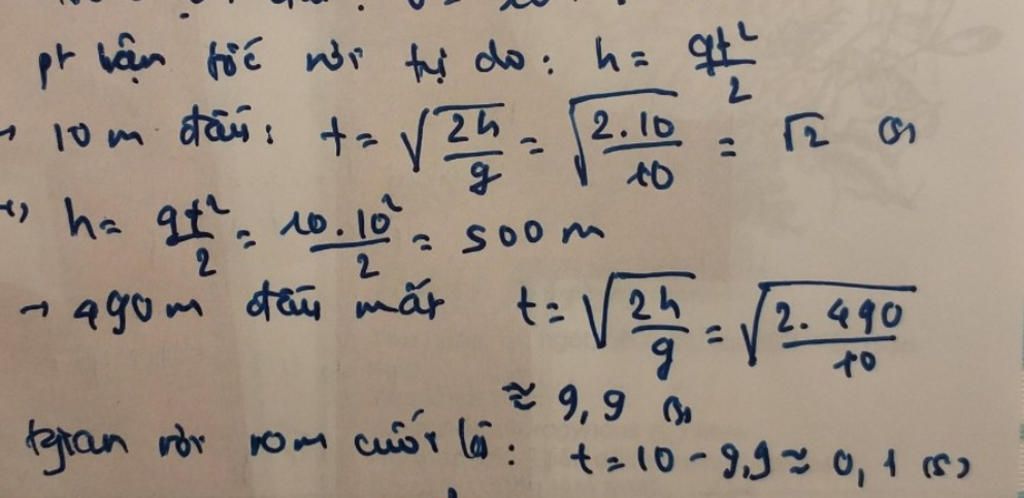 pt vận tốc rơi tự do: h = gt²/2
→ 10 m đầu: t = √(2h/g) = √(2.10/10) = √2 (s)
+) h = gt²/2 = 10.10²/2 = 500 m
→ 490 m đầu mất t = √(2h/g) = √(2.490/10)
≈ 9,9 (s)
tgian rơi 10m cuối là: t = 10 - 9,9 ≈ 0,1 (s)